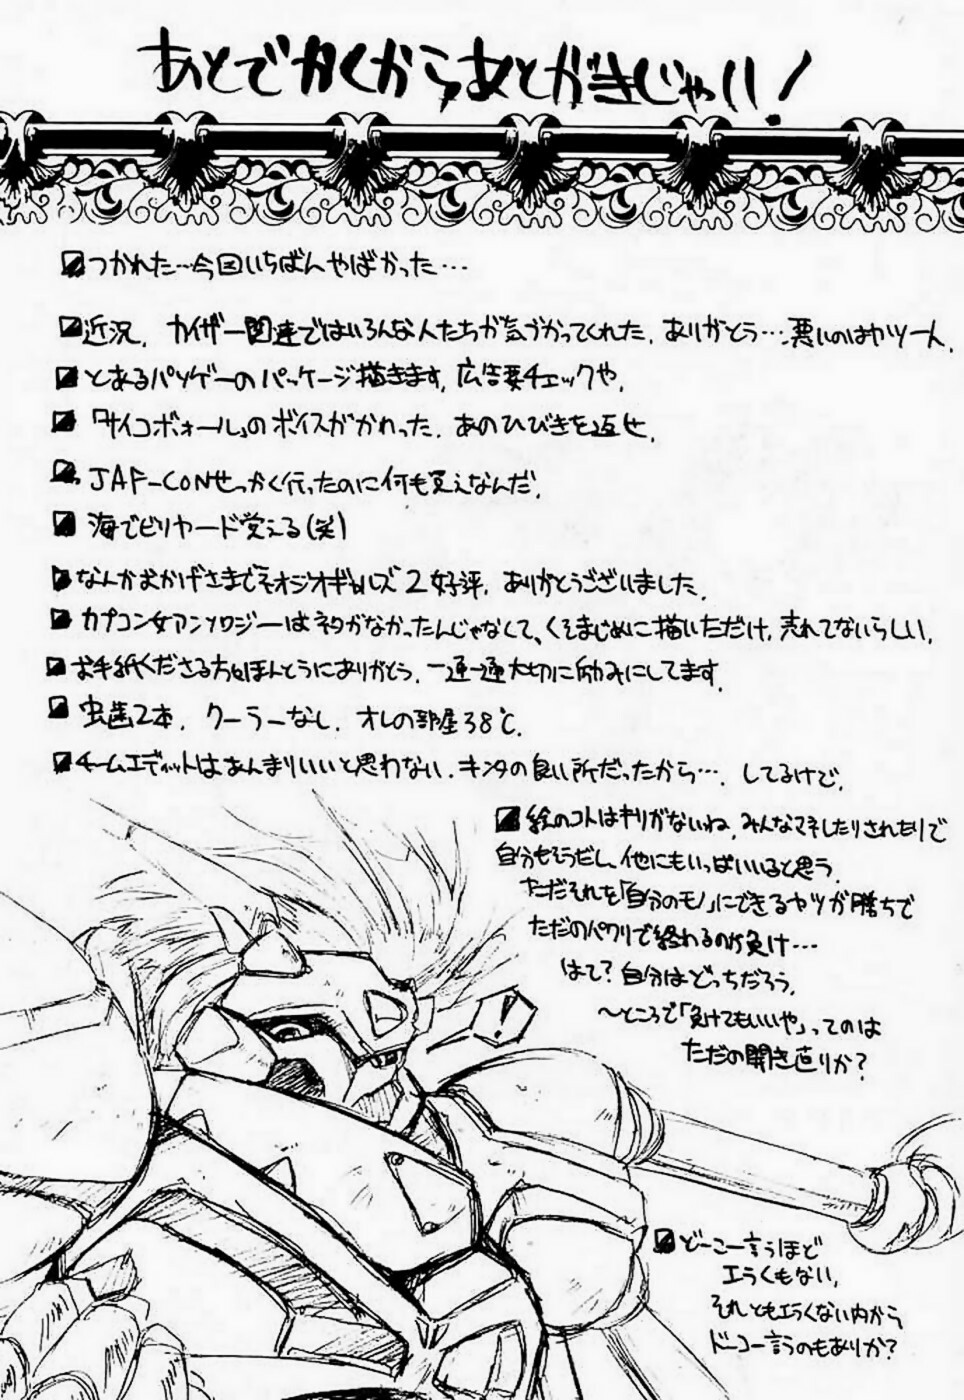 あとでかくからあとがきじゃい!
つかれた…今回いちばんやばかった…
近況. カイザー関連でほいろんな人たちが気づかってくれた. ありがとう…悪いのはヤツ一人.
とあるパソゲーのパッケージ描きます. 広告要チェックや.
「サイコボォール」のボイスがかわった. あのひびきを返せ.
JAF-CONせっかく行ったのに何も買えなんだ.
海でビリヤード覚える(笑)
なんかおかげさまでネオジオギャルズ2好評. ありがとうございました.
カプコン女アンソロジーはネタがなかったんじゃなくて、くそまじめに描いただけ. 売れてないらしい.
お手紙くださる方々ほんとうにありがとう. 一通一通大切に励みにしてます.
虫歯2本. クーラーなし. オレの部屋38℃.
チームエディットはあんまりいいと思わない. キンタの良い所だったから…. してるけど.
絵のコトはキリがないね. みんなマネしたりされたりで
自分もそうだし、他にもいっぱいいると思う.
ただそれを「自分のモノ」にできるヤツが勝ちで
ただのパクリで終わるのが負け…
はて? 自分はどっちだろう.
〜ところで「負けてもいいや」ってのは
ただの開き直りか?
!
どーこー言うほど
エラくもない.
それともエラくない内から
ドーコー言うのもありか?